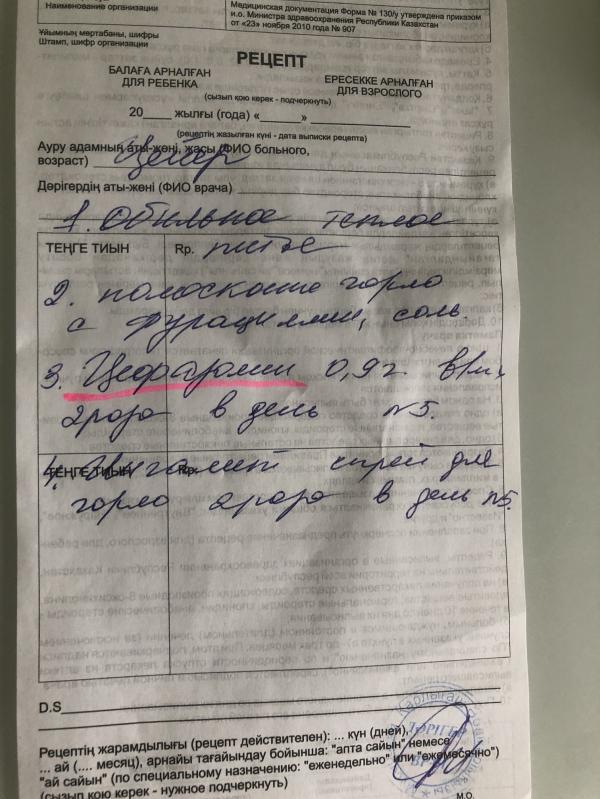 Наименование организации
Медицинская документация Форма № 130/у утверждена приказом
и.о. Министра здравоохранения Республики Казахстан
от «23» ноября 2010 года № 907
Ұйымның мөртабаны, шифры
Штамп, шифр организации
РЕЦЕПТ
БАЛАҒА АРНАЛҒАН
ДЛЯ РЕБЕНКА
ЕРЕСЕККЕ АРНАЛҒАН
ДЛЯ ВЗРОСЛОГО
(сызып қою керек - подчеркнуть)
20____ жылғы (года) «______» ______________
(рецептің жазылған күні - дата выписки рецепта)
Ауру адамның аты-жөні, жасы (ФИО больного,
возраст)
Дәрігердің аты-жөні (ФИО врача)
1. Обильное теплое
ТЕҢГЕ ТИЫН Rp. питье
2. полоскание горло
с фурациллин, соль.
3. 0,9 г. в/м
2 раза в день №5.
ТЕҢГЕ ТИЫН Rp.
4. спрей для
горло 2 раза в день №5.
D.S
Рецептің жарамдылығы (рецепт действителен): ... күн (дней),
... ай (.... месяц), арнайы тағайындау бойынша: "апта сайын" немесе
"ай сайын" (по специальному назначению: "еженедельно" или "ежемесячно")
(сызып қою керек - нужное подчеркнуть)
М.О.
ДӘРІГЕР